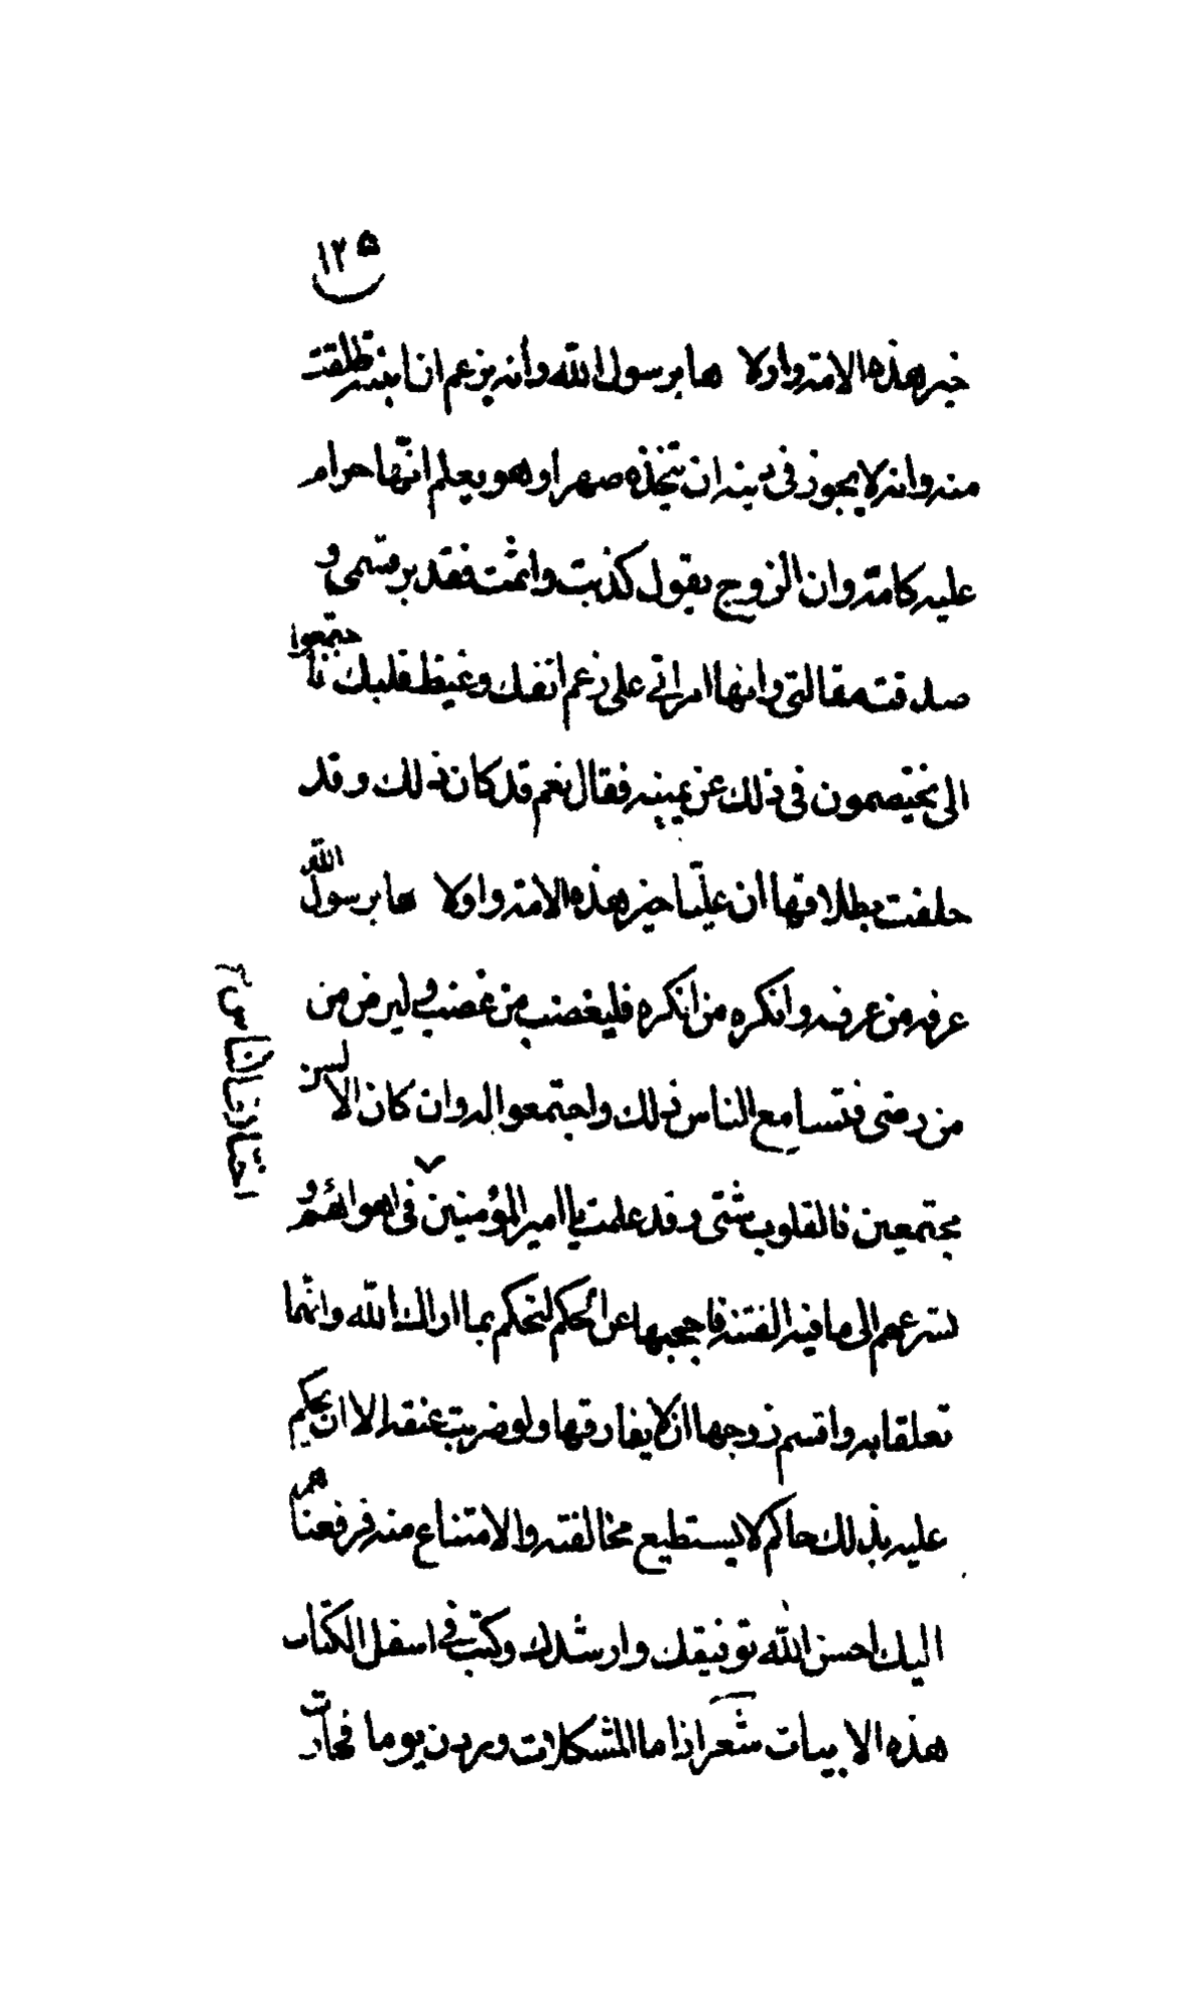 ١٢٥
خير هذه الامة واولاها برسول الله وانه يزعم ان ابنته طلقت
منه وانه لا يجوز فى دينه ان يتخذه صهرا وهو يعلم انّها حرام
عليه كامّه وان الزوج يقول كذبت واثمت فقد بر قسمى و
صدقت مقالتى وانها امراتى على زعم انفك وغيظ قلبك فاجتمعوا
الى يختصمون فى ذلك عن يمينه فقال نعم قد كان ذلك وقد
حلفت بطلاقها ان عليّا خير هذه الامة واولاها برسول الله
عرفه من عرفه وانكره من انكره فليغضب من غضب وليرض من
من رضى فتسامع الناس ذلك واجتمعوا له وان كان الالسن
مجتمعين فالقلوب شتى وقد علمت يا امير المؤمنين فى اهوائهم و
اختلاف الناس
تسرعهم الى ما فيه الفتنة فاحجبها عن الحكم لتحكم بما اراك الله وانّما
تعلقا به واقسم زوجها ان لا يفارقها ولو ضربت عنقه الا ان يحكم
عليه بذلك حاكم لا يستطيع مخالفته والامتناع منه فرفعناهم
اليك احسن الله توفيقك وارشدك وكتب فى اسفل الكتاب
هذه الابيات شعر اذا ما المشكلات وردن يوما فحارت